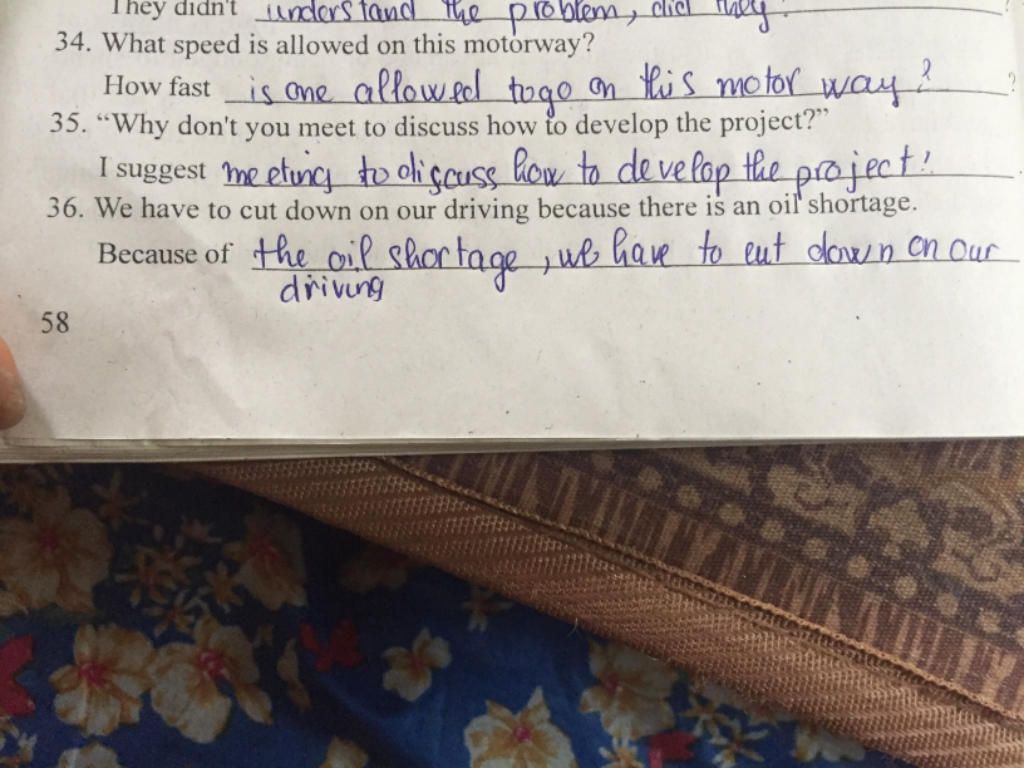 They didn't understand the problem, did they ?
34. What speed is allowed on this motorway?
How fast is one allowed to go on this motor way ? ?
35. “Why don't you meet to discuss how to develop the project?”
I suggest meeting to discuss how to develop the project! .
36. We have to cut down on our driving because there is an oil shortage.
Because of the oil shortage , we have to cut down on our
driving
58